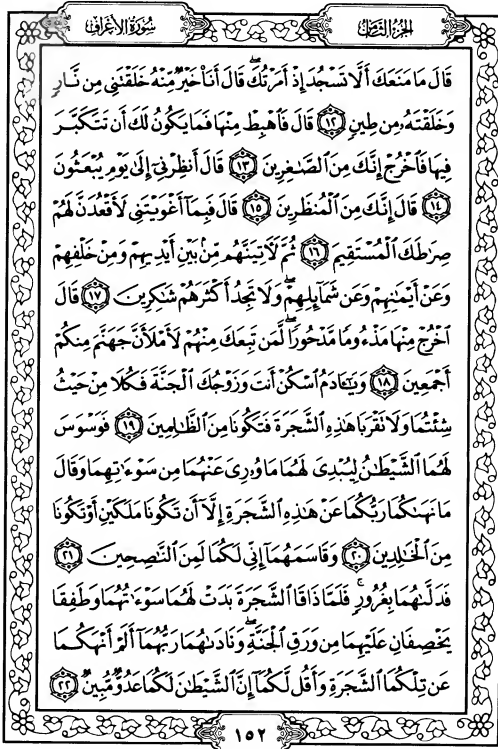 الجزء الثامن
سورة الأعراف
قَالَ مَا مَنَعَكَ أَلَّا تَسْجُدَ إِذْ أَمَرْتُكَ ۖ قَالَ أَنَا۠ خَيْرٌ مِّنْهُ خَلَقْتَنِى مِن نَّارٍ
وَخَلَقْتَهُۥ مِن طِينٍ ١٢ قَالَ فَٱهْبِطْ مِنْهَا فَمَا يَكُونُ لَكَ أَن تَتَكَبَّرَ
فِيهَا فَٱخْرُجْ إِنَّكَ مِنَ ٱلصَّـٰغِرِينَ ١٣ قَالَ أَنظِرْنِىٓ إِلَىٰ يَوْمِ يُبْعَثُونَ
١٤ قَالَ إِنَّكَ مِنَ ٱلْمُنظَرِينَ ١٥ قَالَ فَبِمَآ أَغْوَيْتَنِى لَأَقْعُدَنَّ لَهُمْ
صِرَٰطَكَ ٱلْمُسْتَقِيمَ ١٦ ثُمَّ لَـَٔاتِيَنَّهُم مِّنۢ بَيْنِ أَيْدِيهِمْ وَمِنْ خَلْفِهِمْ
وَعَنْ أَيْمَـٰنِهِمْ وَعَن شَمَآئِلِهِمْ ۖ وَلَا تَجِدُ أَكْثَرَهُمْ شَـٰكِرِينَ ١٧ قَالَ
ٱخْرُجْ مِنْهَا مَذْءُومًا مَّدْحُورًا ۖ لَّمَن تَبِعَكَ مِنْهُمْ لَأَمْلَأَنَّ جَهَنَّمَ مِنكُمْ
أَجْمَعِينَ ١٨ وَيَـٰٓـَٔادَمُ ٱسْكُنْ أَنتَ وَزَوْجُكَ ٱلْجَنَّةَ فَكُلَا مِنْ حَيْثُ
شِئْتُمَا وَلَا تَقْرَبَا هَـٰذِهِ ٱلشَّجَرَةَ فَتَكُونَا مِنَ ٱلظَّـٰلِمِينَ ١٩ فَوَسْوَسَ
لَهُمَا ٱلشَّيْطَـٰنُ لِيُبْدِىَ لَهُمَا مَا وُۥرِىَ عَنْهُمَا مِن سَوْءَٰتِهِمَا وَقَالَ
مَا نَهَىٰكُمَا رَبُّكُمَا عَنْ هَـٰذِهِ ٱلشَّجَرَةِ إِلَّآ أَن تَكُونَا مَلَكَيْنِ أَوْ تَكُونَا
مِنَ ٱلْخَـٰلِدِينَ ٢٠ وَقَاسَمَهُمَآ إِنِّى لَكُمَا لَمِنَ ٱلنَّـٰصِحِينَ ٢١
فَدَلَّىٰهُمَا بِغُرُورٍ ۚ فَلَمَّا ذَاقَا ٱلشَّجَرَةَ بَدَتْ لَهُمَا سَوْءَٰتُهُمَا وَطَفِقَا
يَخْصِفَانِ عَلَيْهِمَا مِن وَرَقِ ٱلْجَنَّةِ ۖ وَنَادَىٰهُمَا رَبُّهُمَآ أَلَمْ أَنْهَكُمَا
عَن تِلْكُمَا ٱلشَّجَرَةِ وَأَقُل لَّكُمَآ إِنَّ ٱلشَّيْطَـٰنَ لَكُمَا عَدُوٌّ مُّبِينٌ ٢٢
١٥٢